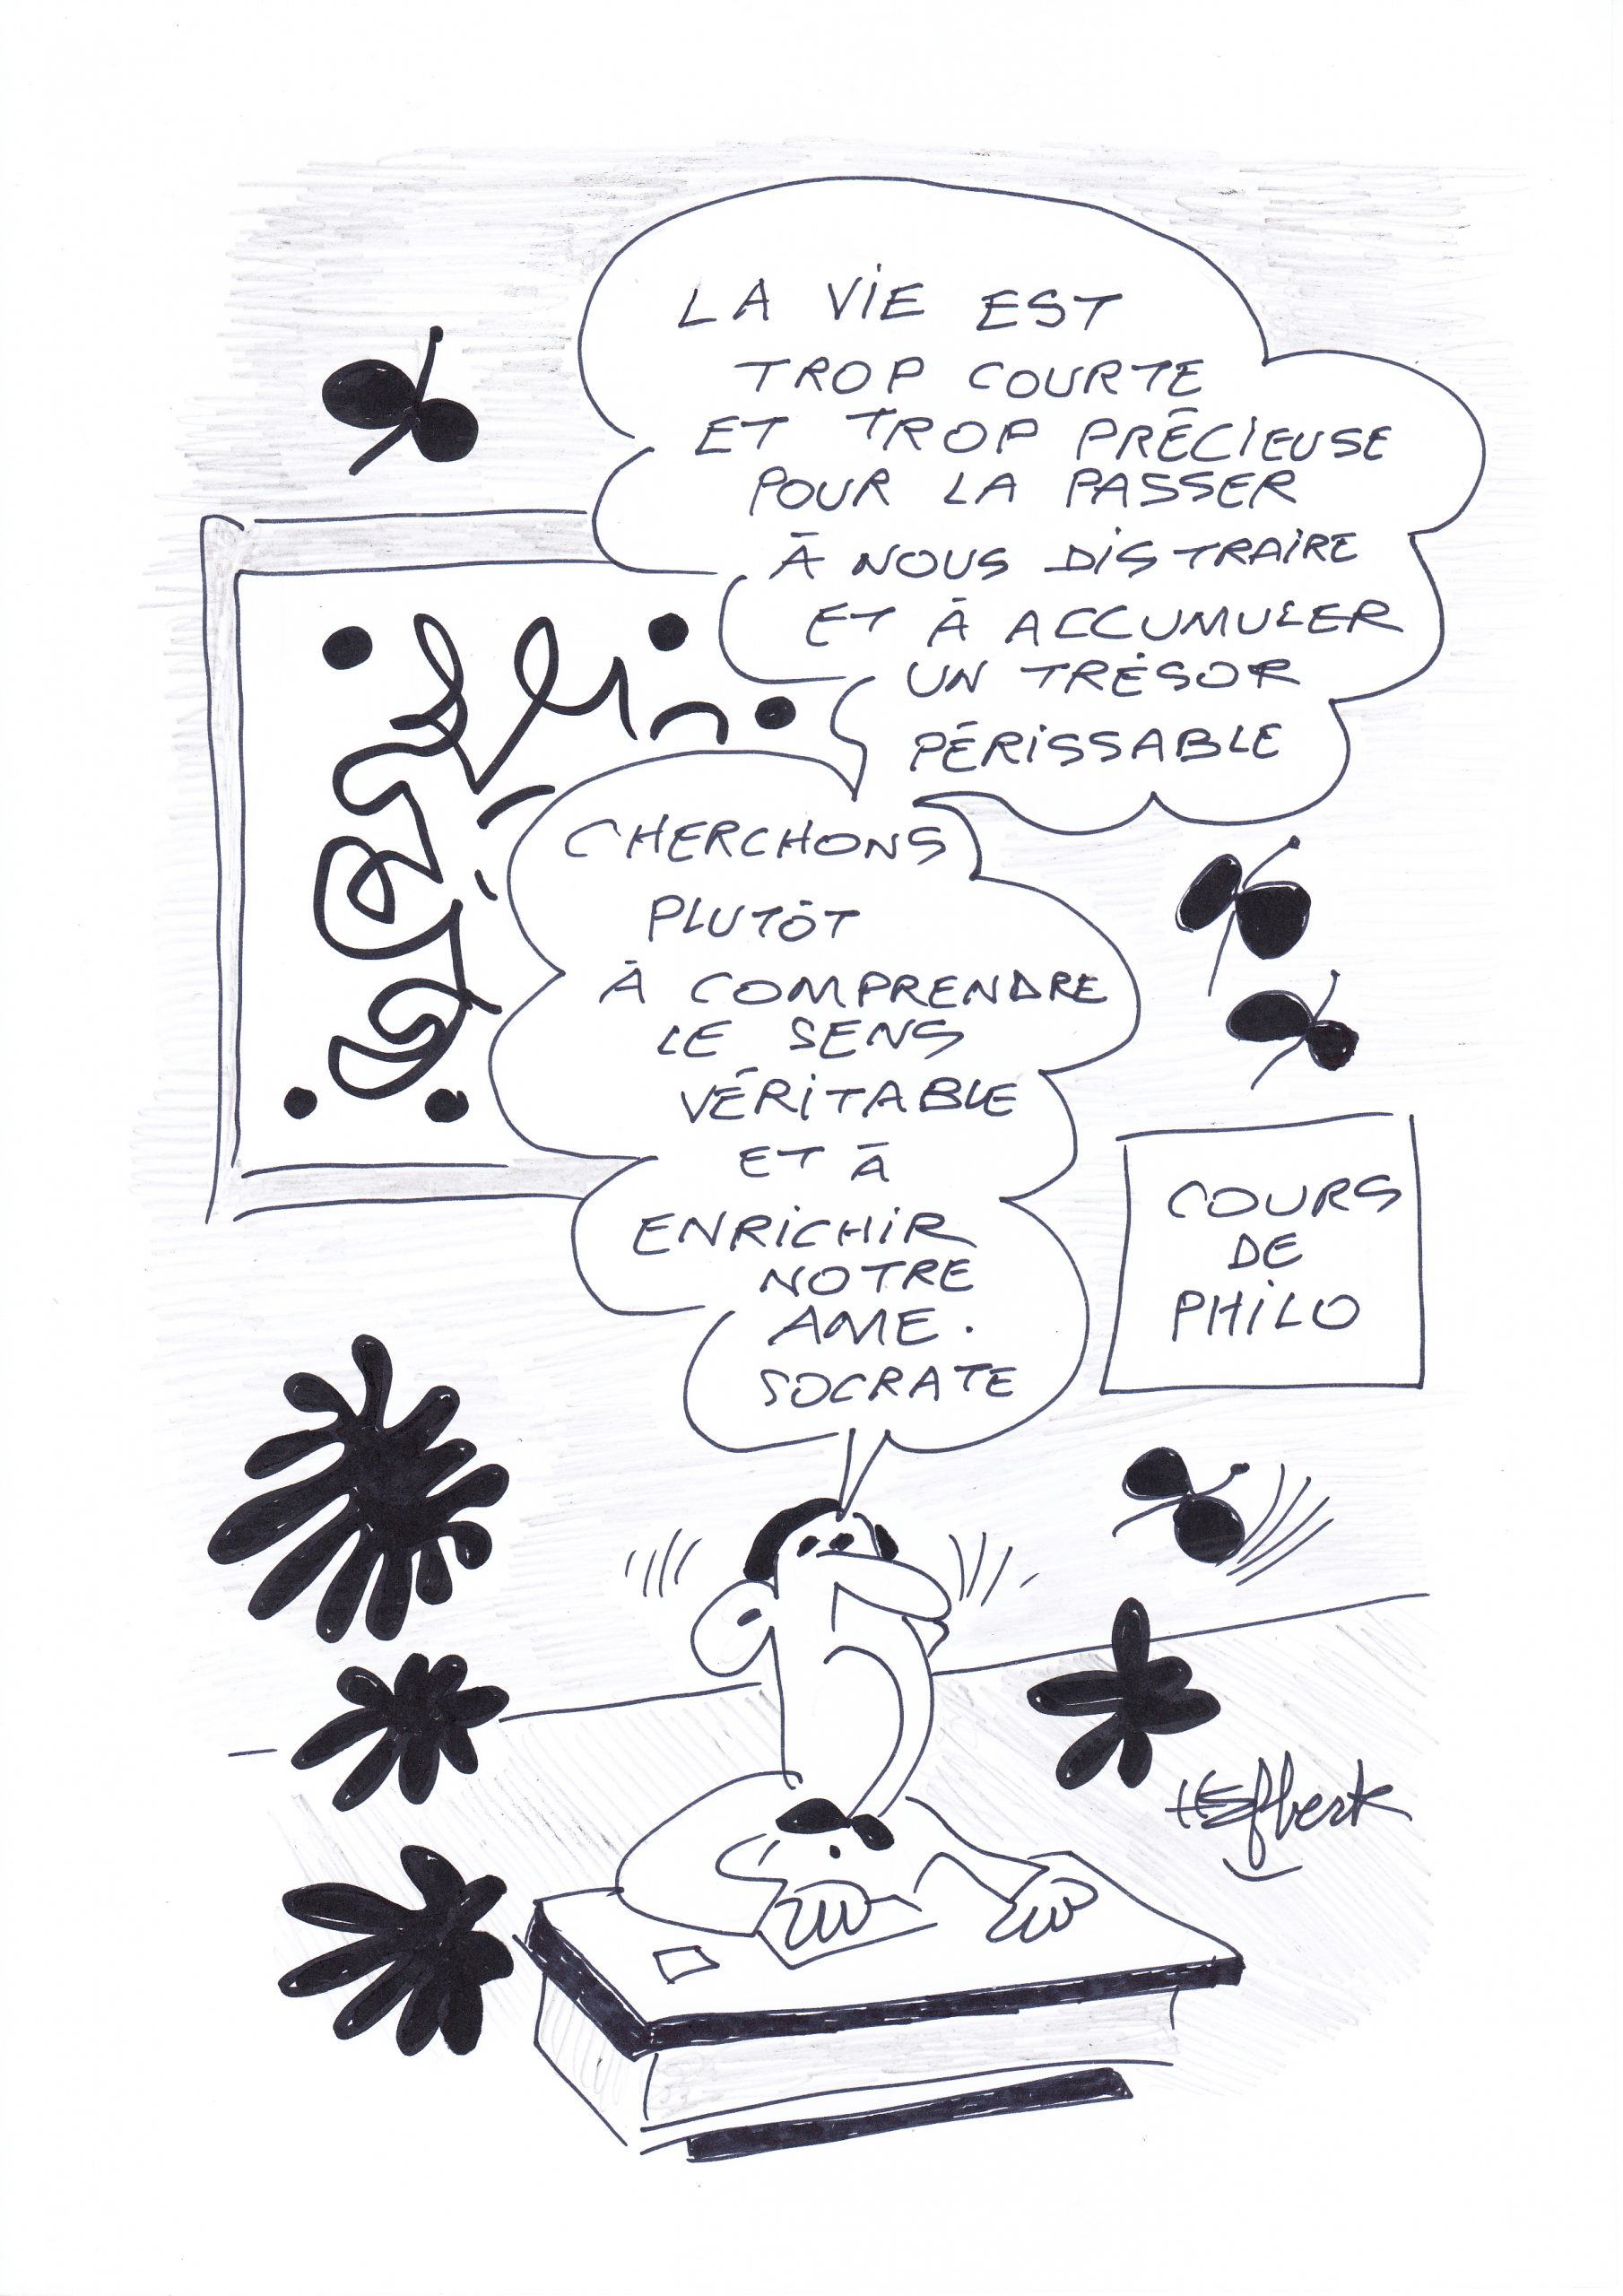 LA VIE EST
TROP COURTE
ET TROP PRÉCIEUSE
POUR LA PASSER
À NOUS DISTRAIRE
ET À ACCUMULER
UN TRÉSOR
PÉRISSABLE
CHERCHONS
PLUTÔT
À COMPRENDRE
LE SENS
VÉRITABLE
ET À
ENRICHIR
NOTRE
AME.
SOCRATE
COURS
DE
PHILO